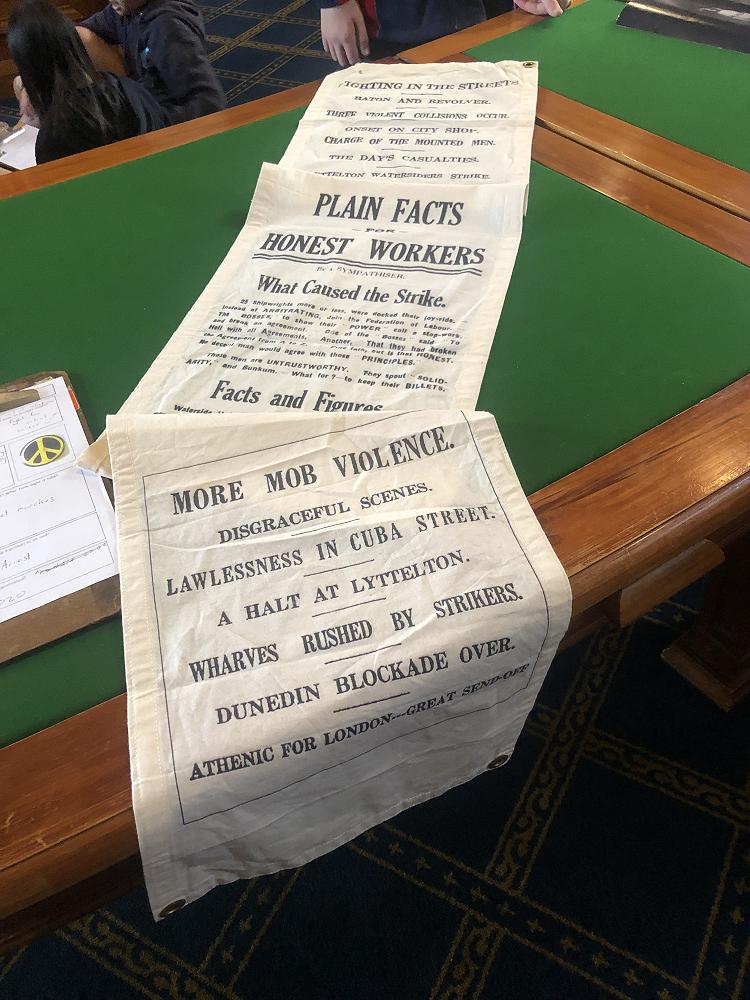 FIGHTING IN THE STREETS
BATON AND REVOLVER.
THREE VIOLENT COLLISIONS OCCUR.
ONSET ON CITY SHOP.
CHARGE OF THE MOUNTED MEN.
THE DAY'S CASUALTIES.
TTELTON WATERSIDERS STRIKE.
PLAIN FACTS
FOR
HONEST WORKERS
By a SYMPATHISER.
What Caused the Strike.
25 Shipwrights more or less, were docked their joy-ride.
Instead of ARBITRATING, Join the Federation of Labour.
The BOSSES, to show their POWER call a stop-work,
and break an agreement. One of the Bosses said "To
Hell with all Agreements. Another. That they had broken
the Agreement from A to fact, but is that HONEST.
No decent man would agree with those PRINCIPLES.
These men are UNTRUSTWORTHY. They spout "SOLID-
ARITY," and Bunkum. What for?—to keep their BILLETS.
Facts and Figures
Waterside
MORE MOB VIOLENCE.
DISGRACEFUL SCENES.
LAWLESSNESS IN CUBA STREET.
A HALT AT LYTTELTON.
WHARVES RUSHED BY STRIKERS.
DUNEDIN BLOCKADE OVER.
ATHENIC FOR LONDON—GREAT SEND-OFF
marches
Arrest
020